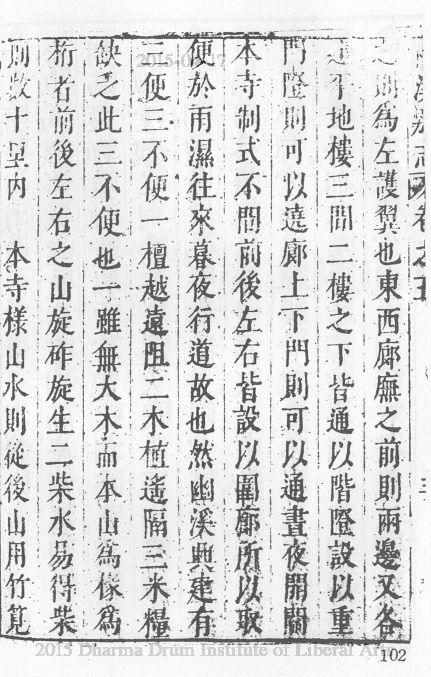 幽溪別志 卷之五
之則為左護翼也東西廊廡之前則兩邊又各
建平地樓三間二樓之下皆通以階隥設以重
門隥則可以遶廊上下門則可以通晝夜開關
本寺制式不問前後左右皆設以圍廊所以取
便於雨濕往來暮夜行道故也然幽溪興建有
三便三不便一檀越遠阻二木植遙隔三米糧
缺乏此三不便也一雖無大木而本山為椽為
桁者前後左右之山旋砟旋生二柴水易得柴
則數十里內 本寺樣山水則從後山用竹筧
2015-04-27
2015 Dharma Drum Institute of Liberal Arts
102